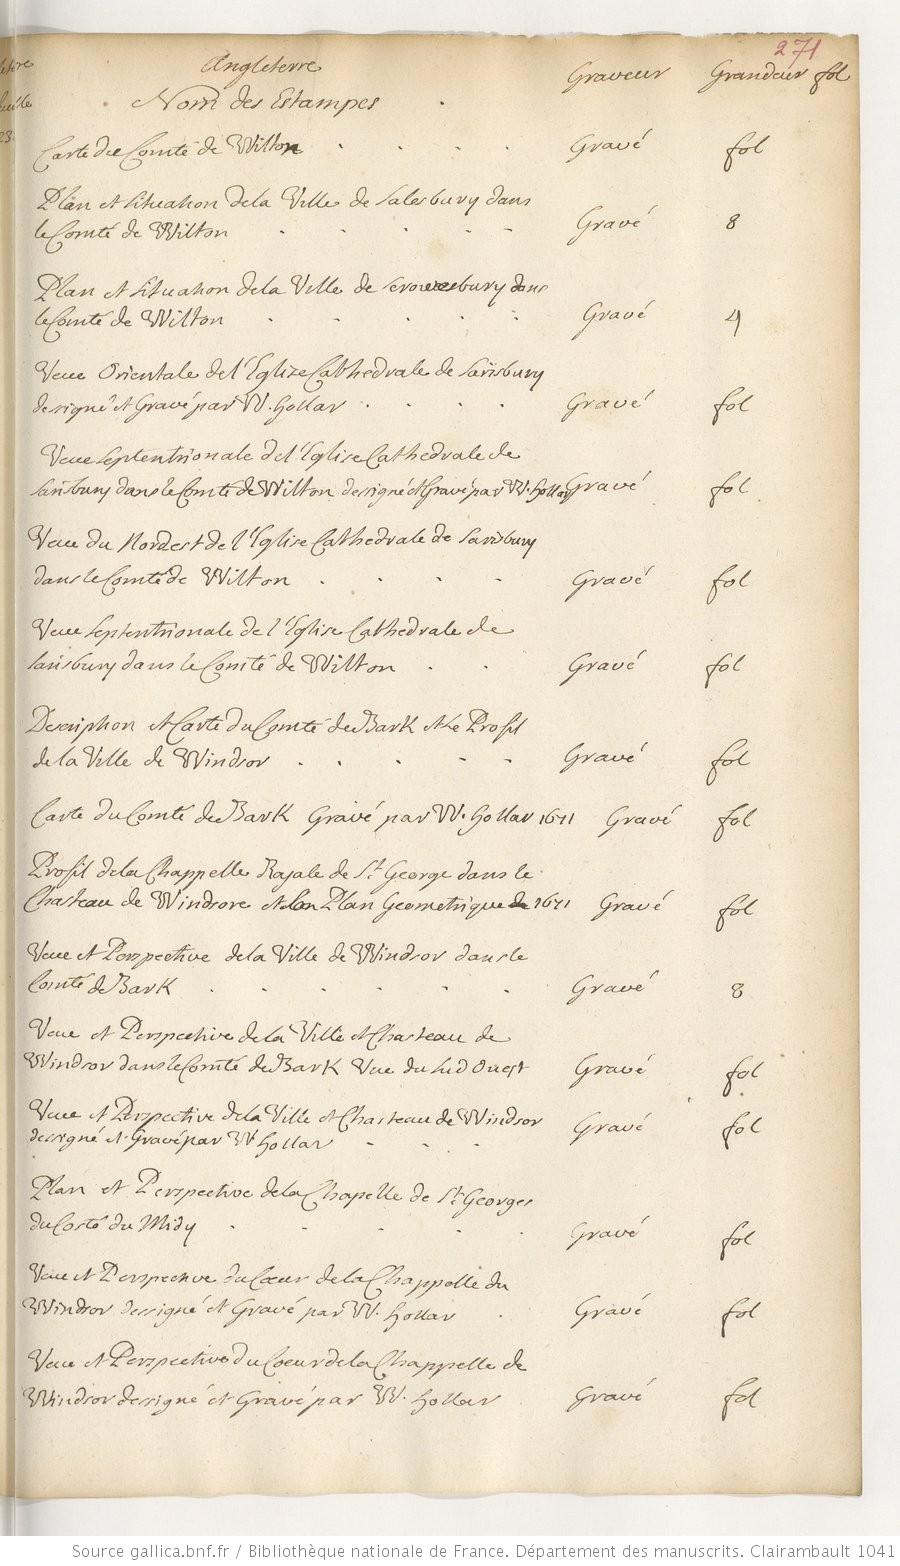 271
Angleterre
Nom des Estampes Graveur Grandeur fol
Carte du Comté de Wilton Gravé fol
Plan et situation de la Ville de Salesbury dans
le Comté de Wilton Gravé 8
Plan et situation de la Ville de dans
le Comté de Wilton Gravé 4
Veue Orientale de l'Eglize Cathedrale de Sarisbury
designé et Gravé par W. Hollar Gravé fol
Veue septentrionale de l'Eglise Cathedrale de
Sarisbury dans le Comté de Wilton dessigné et Gravé par W. Hollar Gravé fol
Veue du Nordest de l'Eglise Cathedrale de Sarisbury
dans le Comté de Wilton Gravé fol
Veue septentrionale de l'Eglise Cathedrale de
Sarisbury dans le Comté de Wilton Gravé fol
Description et Carte du Comté de Bark et le Profil
de la Ville de Windsor Gravé fol
Carte du Comté de Bark Gravé par W. Hollar 1671 Gravé fol
Profil de la Chappelle Rajale de St. George dans le
Chasteau de Windsore et son Plan Geometrique 1671 Gravé fol
Veue et Perspective de la Ville de Windsor dans le
Comté de Bark Gravé 8
Veue et Perspective de la Ville et Chasteau de
Windsor dans le Comté de Bark Vue du Sud Ouest Gravé fol
Veue et Perspective de la Ville et Chasteau de Windsor
dessigné et Gravé par W Hollar Gravé fol
Plan et Perspective de la Chapelle de St. Georges
du Costé du Midy Gravé fol
Veue et Perspective du Cœur de la Chappelle du
Windsor dessigné et Gravé par W. Hollar Gravé fol
Veue et Perspective du Coeur de la Chappelle de
Windsor dessigné et Gravé par W. Hollar Gravé fol
Source gallica.bnf.fr / Bibliothèque nationale de France. Département des manuscrits. Clairambault 1041